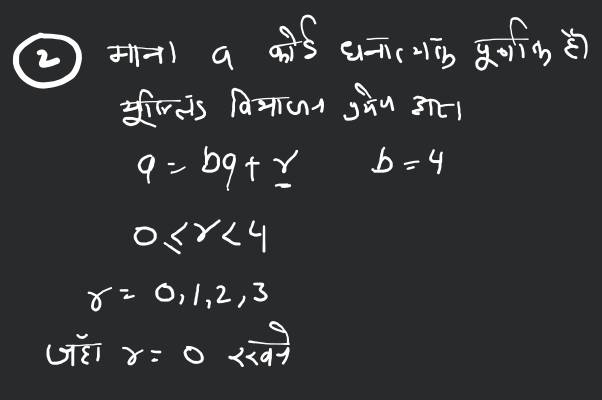 ② माना a कोई धनात्मक पूर्णांक है।
यूक्लिड विभाजन प्रमेय द्वारा
a = bq + r b = 4
0 ≤ r < 4
r = 0, 1, 2, 3
जहाँ r = 0 रखने